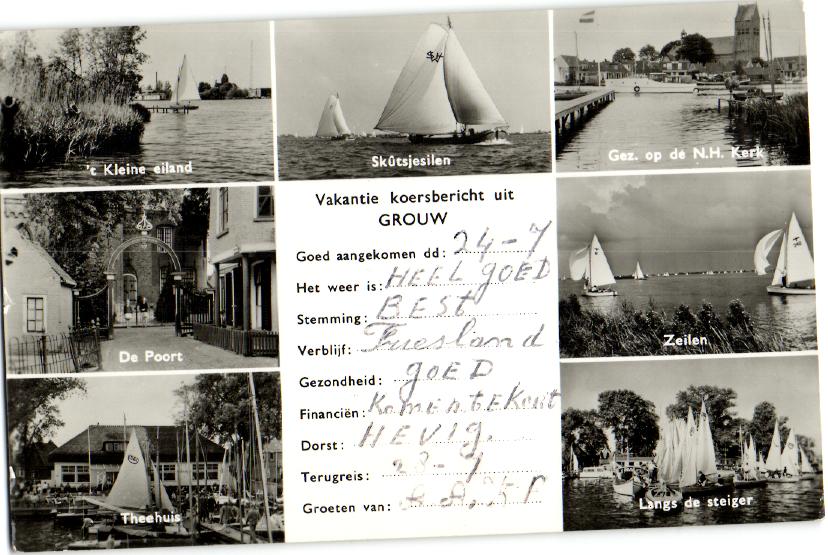 't Kleine eiland
Skûtsjesilen
Gez. op de N.H. Kerk
Vakantie koersbericht uit
GROUW
Goed aangekomen dd: 24-7
Het weer is: HEEL gOED
Stemming: BEST
Verblijf: Friesland
Gezondheid: gOED
Financiën: KomEntEKort
Dorst: HEVIg.
Terugreis: 28-
Groeten van:
De Poort
Zeilen
Theehuis
Langs de steiger